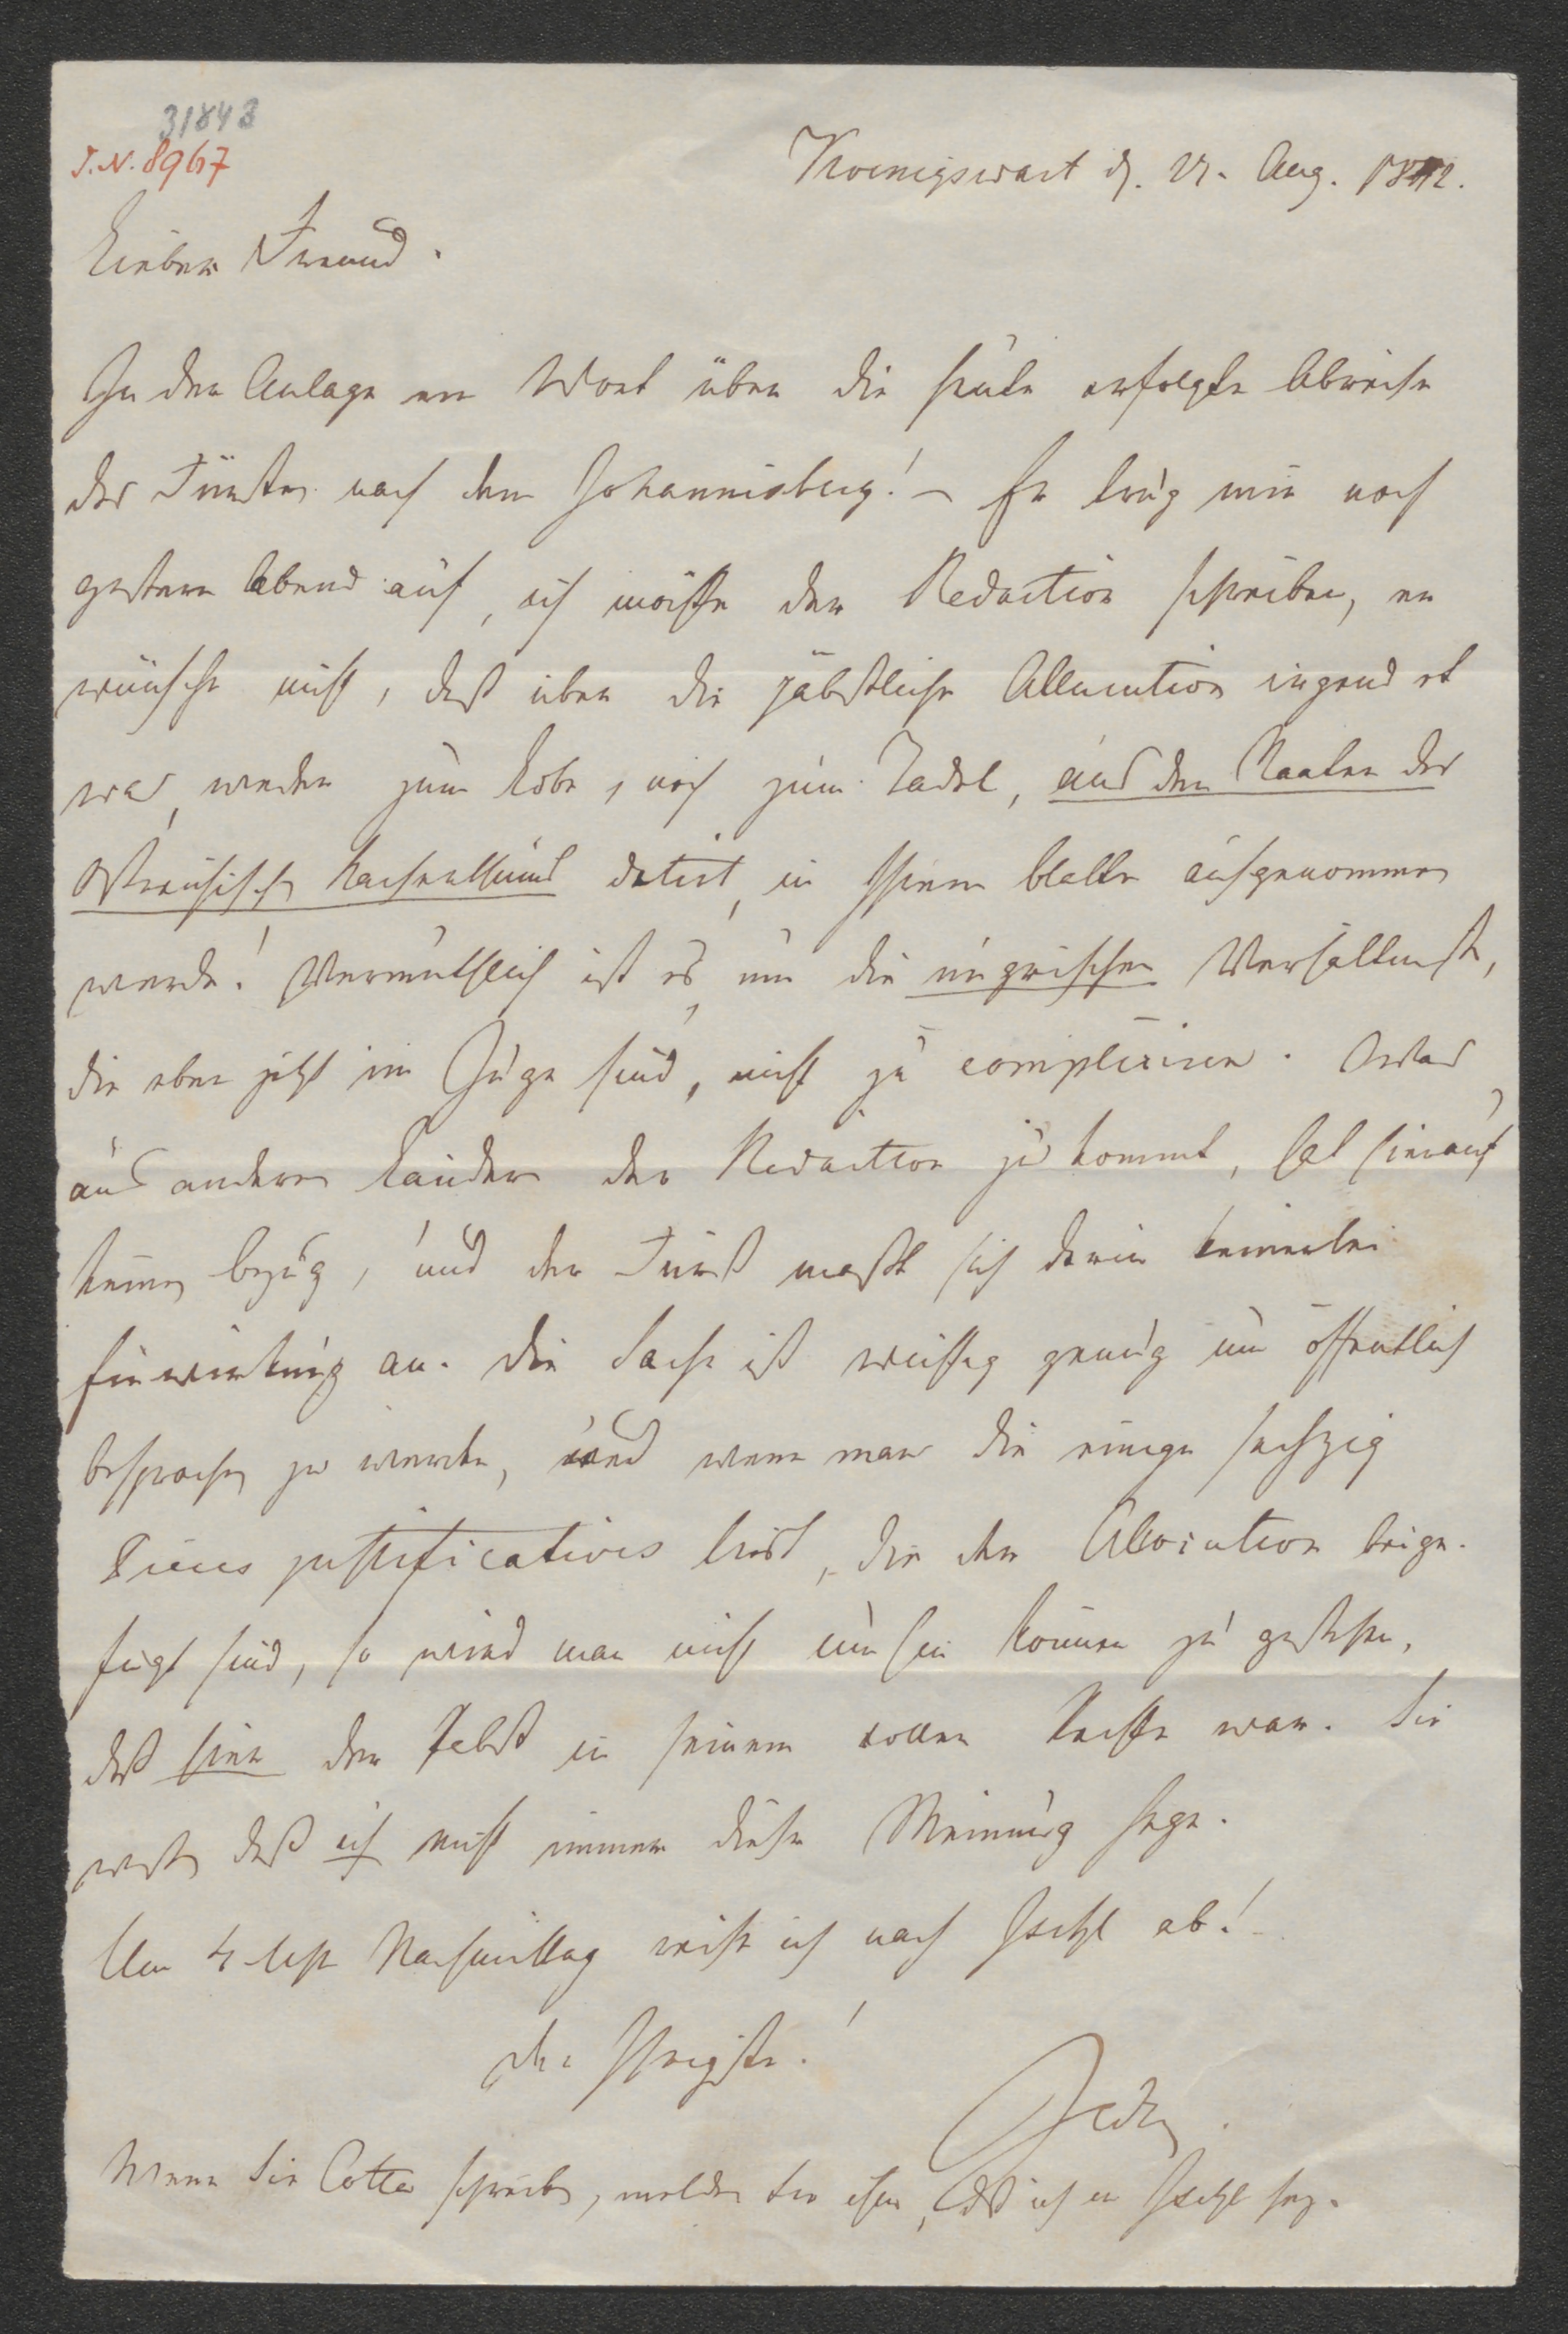 31843
I.N. 8967
Koenigswart d. 21. Aug. 1842.
Lieber Freund.
In der Anlage ein Wort über die heute erfolgte Abreise
des Fürsten nach dem Johannisberg! – Er trug mir noch
gestern Abend auf, ich möchte der Redaction schreiben, er
wünsche nicht, daß über die päbstliche Allocution irgend et
was, weder zum Lobe, noch zum Tadel, aus den Staaten des
Ostreichischen Kaiserthums datirt, in Ihrem Blatte aufgenommen
werde! Vermuthlich ist es, um die ungrischen Verhältnisse,
die eben jetzt im Zuge sind, nicht zu compliciren. Was
aus anderen Ländern der Redaction zu kommt, hat hierauf
keinen Bezug, und der Fürst maßt sich darin keinerlei
Einwirkung an. Die Sache ist wichtig genug um öffentlich
besprochen zu werden, und wenn man die einige sechzig
Pieces justificatives liest, die der Allocution beige-
fügt sind, so wird man nicht umhin können zu gestehen,
daß hier der Pabst in seinem vollen Rechte war. Sie
wissen daß ich nicht immer dieser Meinung hege.
Um 4 Uhr Nachmittag reise ich nach Ischl ab!
der Ihrigste!
Zedlitz.
Wenn Sie Cotta schreiben, melden Sie ihm, daß ich in Ischl sey.